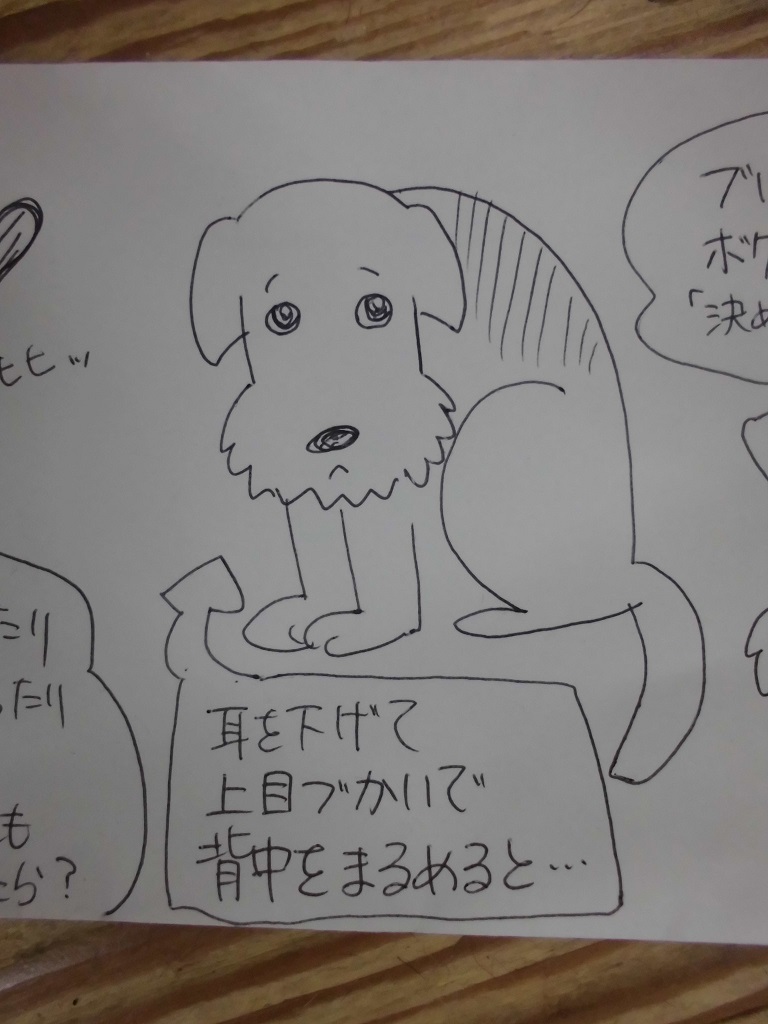 ヒヒッ
たり
ったり
も
たら?
耳を下げて
上目づかいで
背中をまるめると…
ブ
ボク
「決め